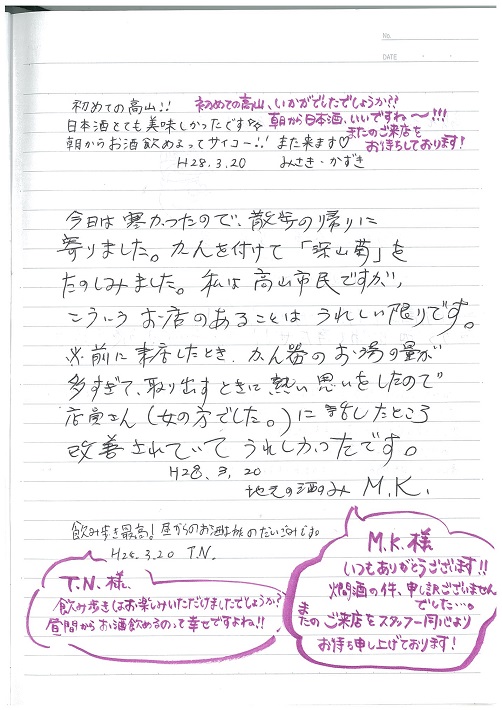 No.
DATE
初めての高山!!
初めての高山、いかがでしたでしょうか??
日本酒とても美味しかったです☆
朝から日本酒、いいですね〜!!!
朝からお酒飲めるってサイコー!! また来ます♡
またのご来店を
お待ちしております!
H28.3.20 みさき・かずき
今日は寒かったので、散歩の帰りに
寄りました。カンを付けて「深山菊」を
たのしみました。私は高山市民ですが、
こういうお店のあることはうれしい限りです。
以前に来店したとき、かん器のお湯の量が
多すぎて、取り出すときに熱い思いをしたので
店員さん(女の方でした。)に話したところ
改善されていてうれしかったです。
H28.3.20
地元の酒のみ M.K.
飲み歩き最高!昼からのお酒は旅のだいごみです。
H28.3.20 T.N.
T.N.様
飲み歩きはお楽しみいただけましたでしょうか?
昼間からお酒飲めるのって幸せですよね!!
M.K.様
いつもありがとうございます!!
燗酒の件、申し訳ございません
でした…。
またのご来店をスタッフ一同心より
お待ち申し上げております!